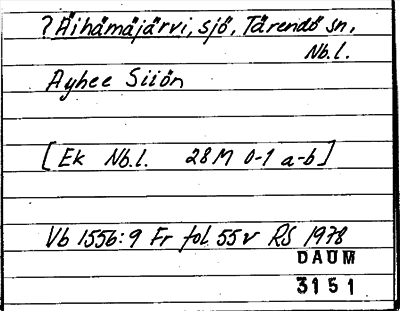 ? Äihämäjärvi, sjö, Tärendö sn,
Nb.l.
Ayhee Siiön
[Ek Nb.l. 28M 0-1 a-b]
Vb 1556:9 Fr fol. 55v RS 1978
DAUM
3151